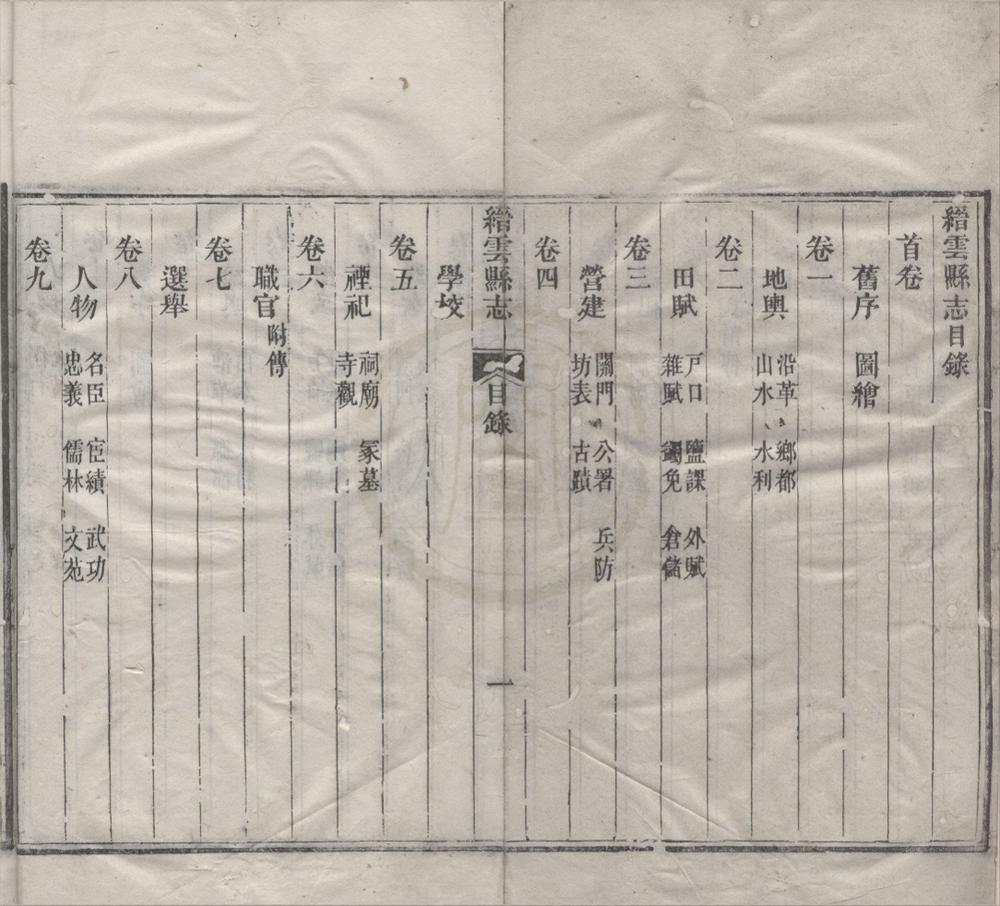 縉雲縣志目錄
首卷
舊序 圖繪
卷一
地輿 沿革 鄉都
山水 水利
卷二
田賦 戸口 鹽課 外賦
雜賦 蠲免 倉儲
卷三
營建 關門 公署 兵防
坊表 古蹟
卷四
縉雲縣志 目錄 一
學校
卷五
禋祀 祠廟 冢墓
寺觀
卷六
職官 附傳
卷七
選舉
卷八
人物 名臣 宦績 武功
忠義 儒林 文苑
卷九